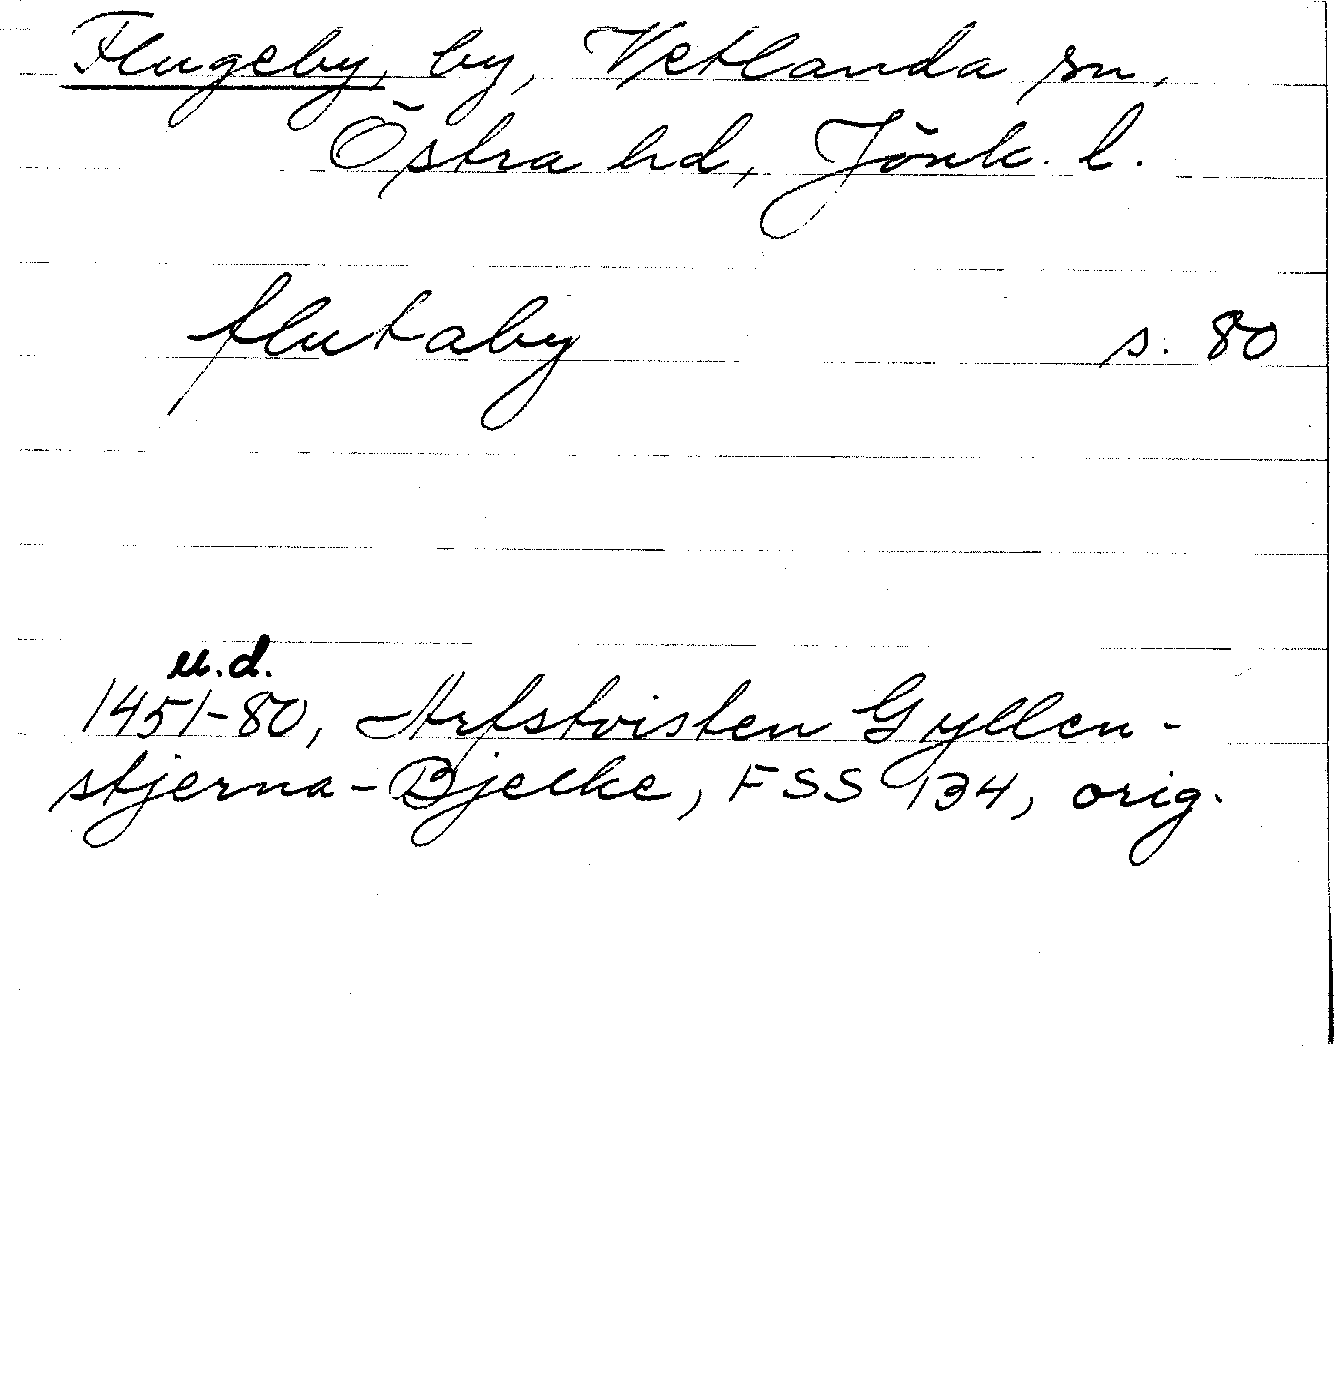 Flugeby, by, Vetlanda sn,
Östra hd, Jönk. l.
flutaby s. 80
u.d.
1451-80, Arfstvisten Gyllen-
stjerna-Bjelke, FSS 134, orig.